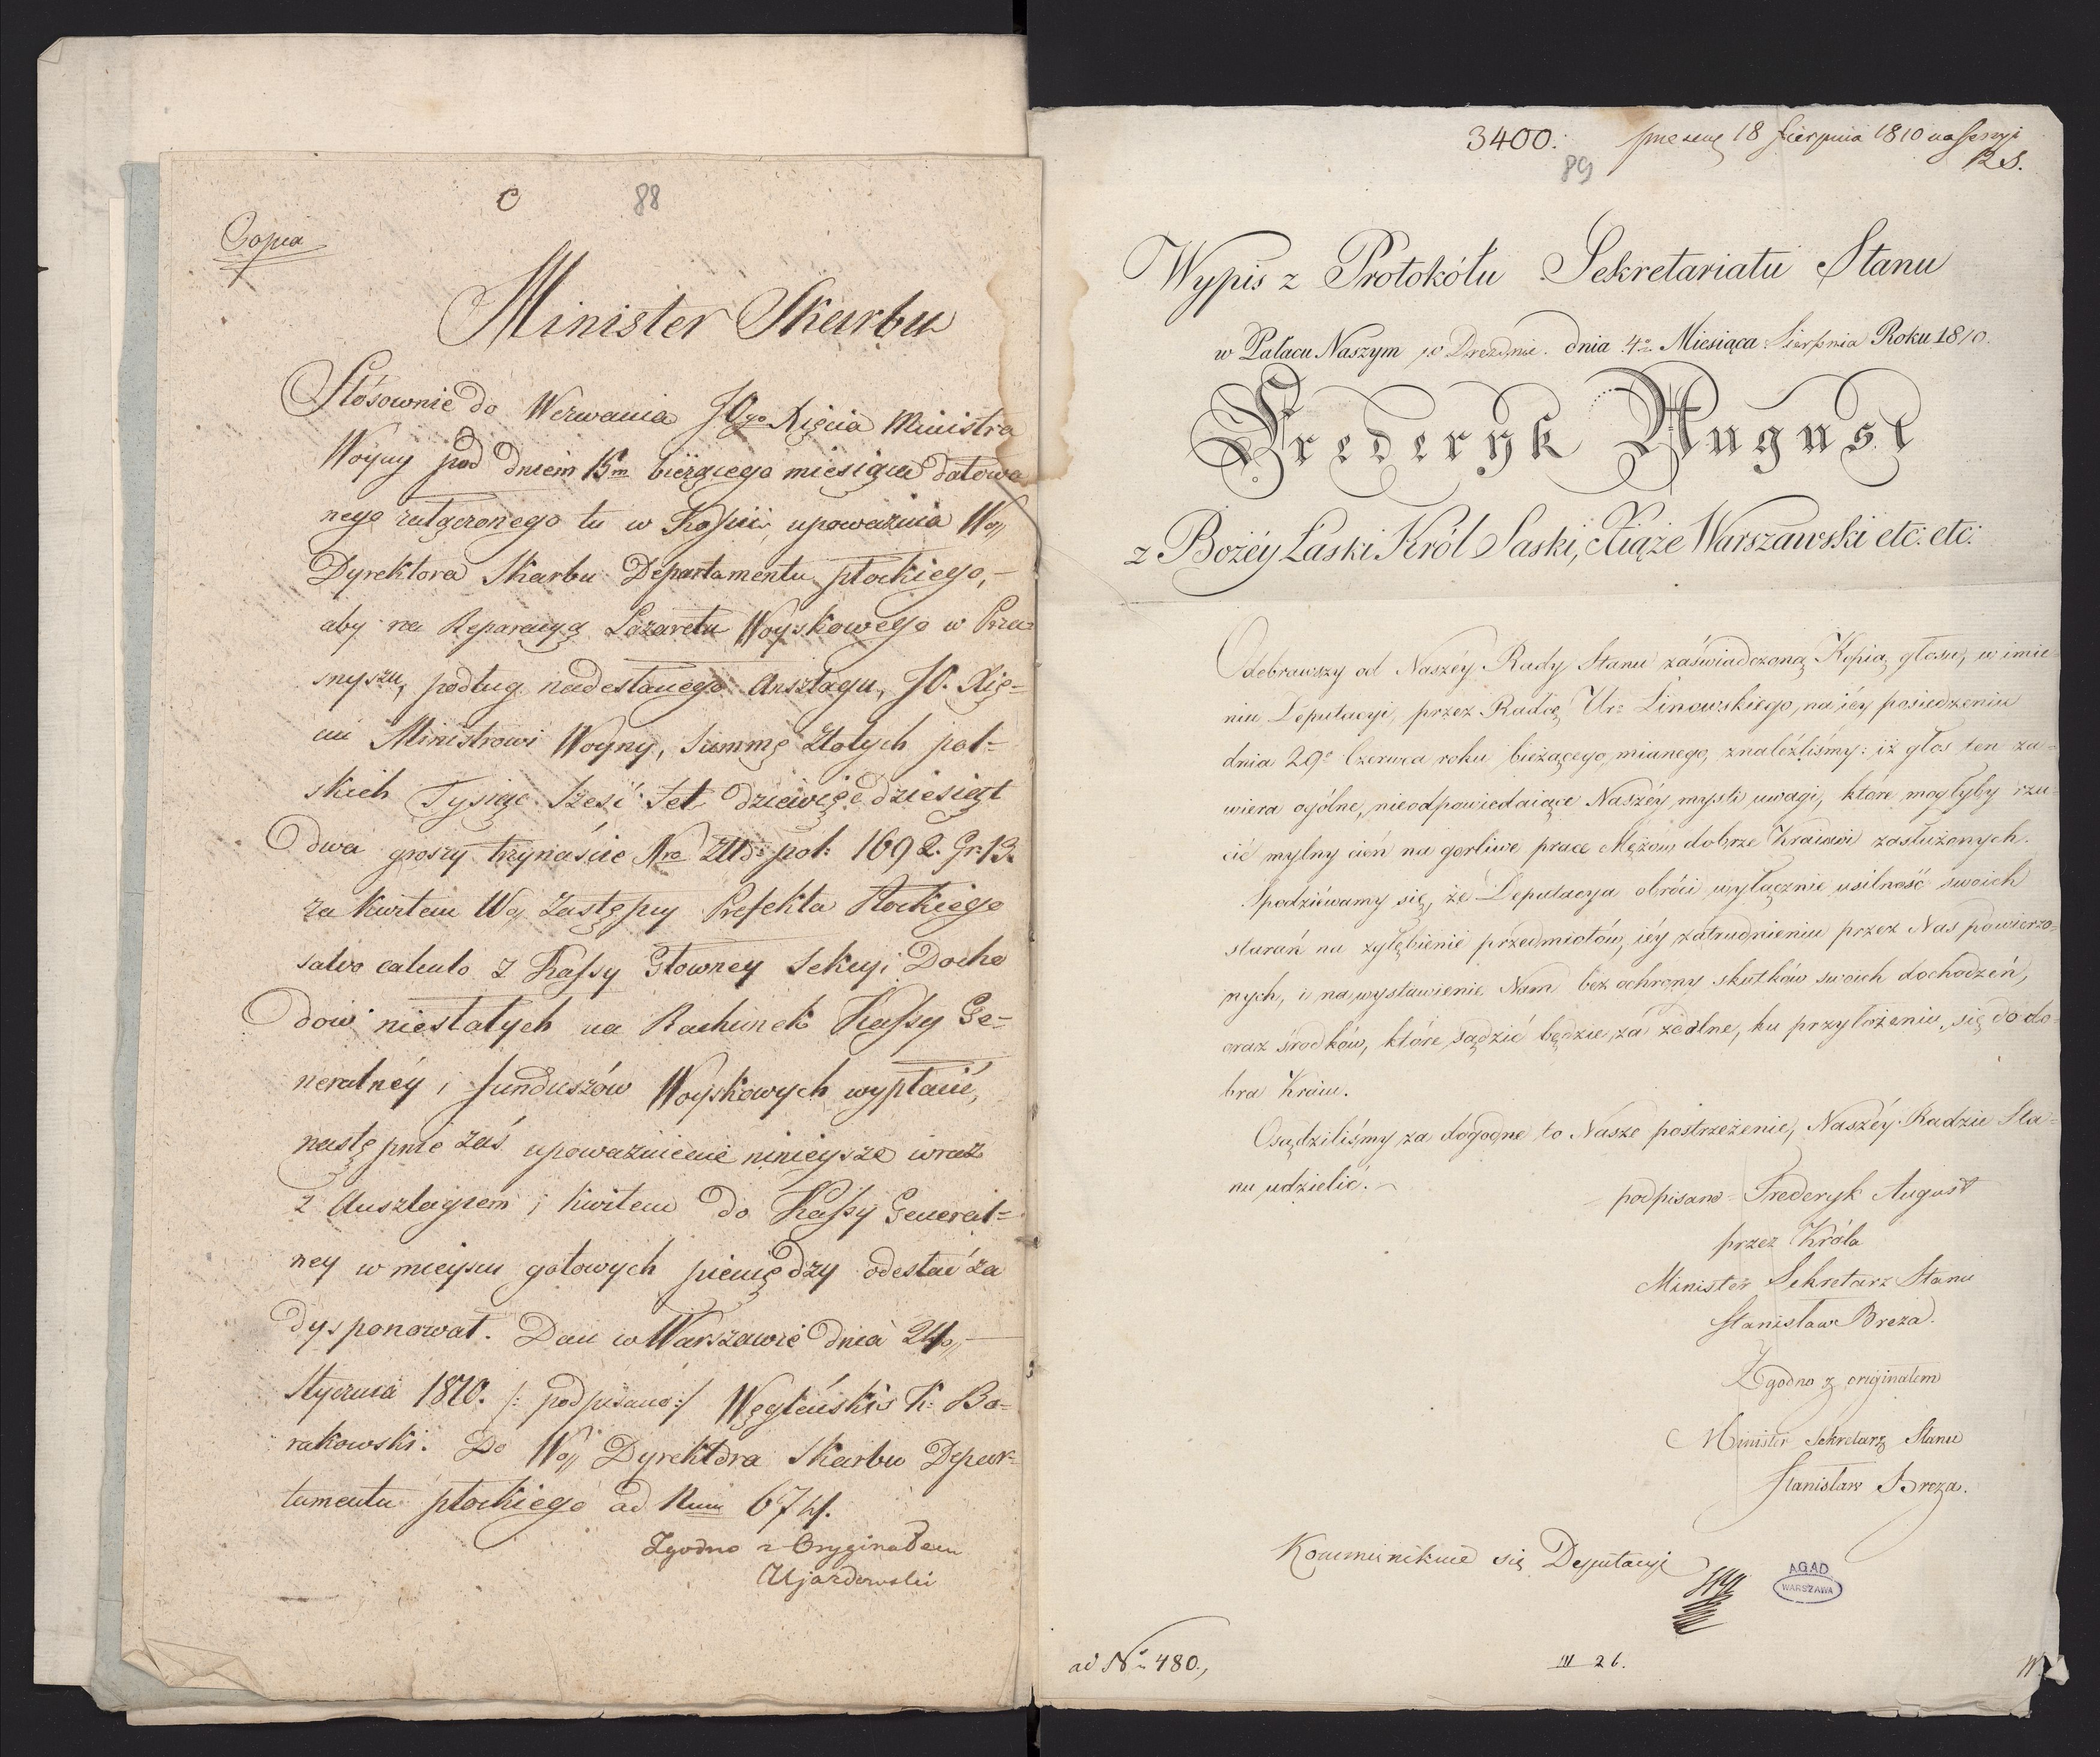 C 88
Copia
Minister Skarbu
Stósownie do Wezwania JOgo Xięcia Ministra
Woyny pod dniem 15m bieżącego miesiąca datowa
nego załączonego tu w Kopii, upoważnia W
Dyrektora Skarbu Departamentu płockiego,
aby na Reparacyą Lazaretu Woyskowego w Prza=
snyszu, podług nadesłanego Anszlagu, JO. Xię=
ciu Ministrowi Woyny, Summę Złotych pol=
skich Tysiąc Sześć Set dziewięćdziesiąt
dwa groszy trzynaście Nro Złł: pol: 1692. Gr: 13.
za kwitem W Zastępcy Prefekta Płockiego
salvo calculo z Kassy Głowney Sekcyi Docho
dow niestałych na Rachunek Kassy Ge=
neralnéy i funduszów Woyskowych wypłacił,
następnie zaś upoważnienie ninieysze wraz
z Anszlagiem i kwitem do Kassy General=
ney w mieyscu gotowych pieniędzy odesłać za
dysponował. Dan w Warszawie dnia 24
Stycznia 1810. /: podpisano :/ Węgleński K: Bo=
rakowski. Do W Dyrektora Skarbu Depar=
tamentu płockiego ad Num 674.
Zgodno z Oryginałem
Ujazdowski
3400. 18 Sierpnia 1810 na Sessyi
89 R S.
Wypis z Protokółu Sekretariatu Stanu
w Pałacu Naszym w Dreznie. dnia 4o Miesiąca Sierpnia Roku 1810.
Frederyk August
z Bożéy Łaski Król Saski, Xiąże Warszawski etc: etc:
Odebrawszy od Naszéy Rady Stanu zaświadczoną Kopią głosu, w imie=
niu Deputacyi, przez Radcę Ur: Linowskiego, na iéy posiedzeniu
dnia 29o Czerwca roku bieżącego, mianego, znaleźliśmy: iż głos ten za=
wiera ogólne, nieodpowiedaiące Naszéy myśli uwagi, które mogłyby rzu=
cić mylny cień na gorliwe prace Mężów dobrze Kraiowi zasłużonych.
Spodziéwamy się, że Deputacya obróci wyłącznie usilność swoich
starań na zgłębienie przedmiotów, iéy zatrudnieniu przez Nas powierzo=
nych, i na wystawienie Nam bez ochrony skutków swoich dochodzeń,
oraz środków, które sądzić będzie, za zdolne, ku przyłożeniu się do do=
bra Kraiu.
Osądziliśmy za dogodne to Nasze postrzeżenie, Naszéy Radzie Sta=
nu udzielić.
podpisano = Frederyk August
przez Króla
Minister Sekretarz Stanu
Stanisław Breza.
Zgodno z originałem
Minister Sekretarz Stanu
Stanisław Breza.
Kommunikuie się Deputacyi
AGAD
WARSZAWA
ad No 480.,
III 26.